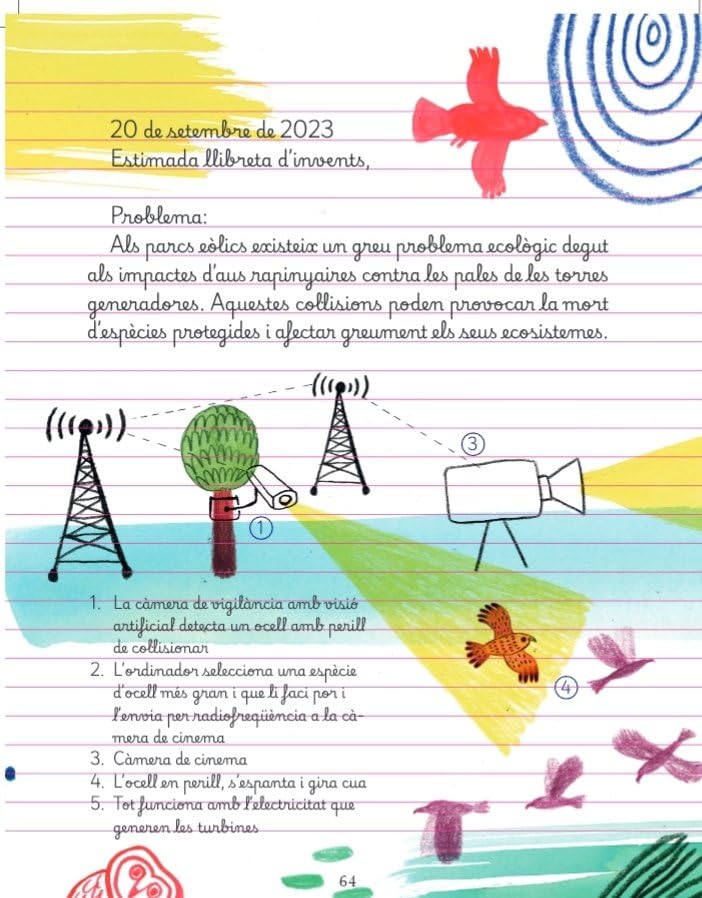 20 de setembre de 2023
Estimada llibreta d'invents,
Problema:
Als parcs eòlics existeix un greu problema ecològic degut
als impactes d'aus rapinyaires contra les pales de les torres
generadores. Aquestes collisions poden provocar la mort
d'espècies protegides i afectar greument els seus ecosistemes.
3
1
1. La càmera de vigilància amb visió
artificial detecta un ocell amb perill
de collisionar
2. L'ordinador selecciona una espècie
d'ocell més gran i que li faci por i
l'envia per radiofreqüència a la cà-
mera de cinema
3. Càmera de cinema
4. L'ocell en perill, s'espanta i gira cua
5. Tot funciona amb l'electricitat que
generen les turbines
4
64